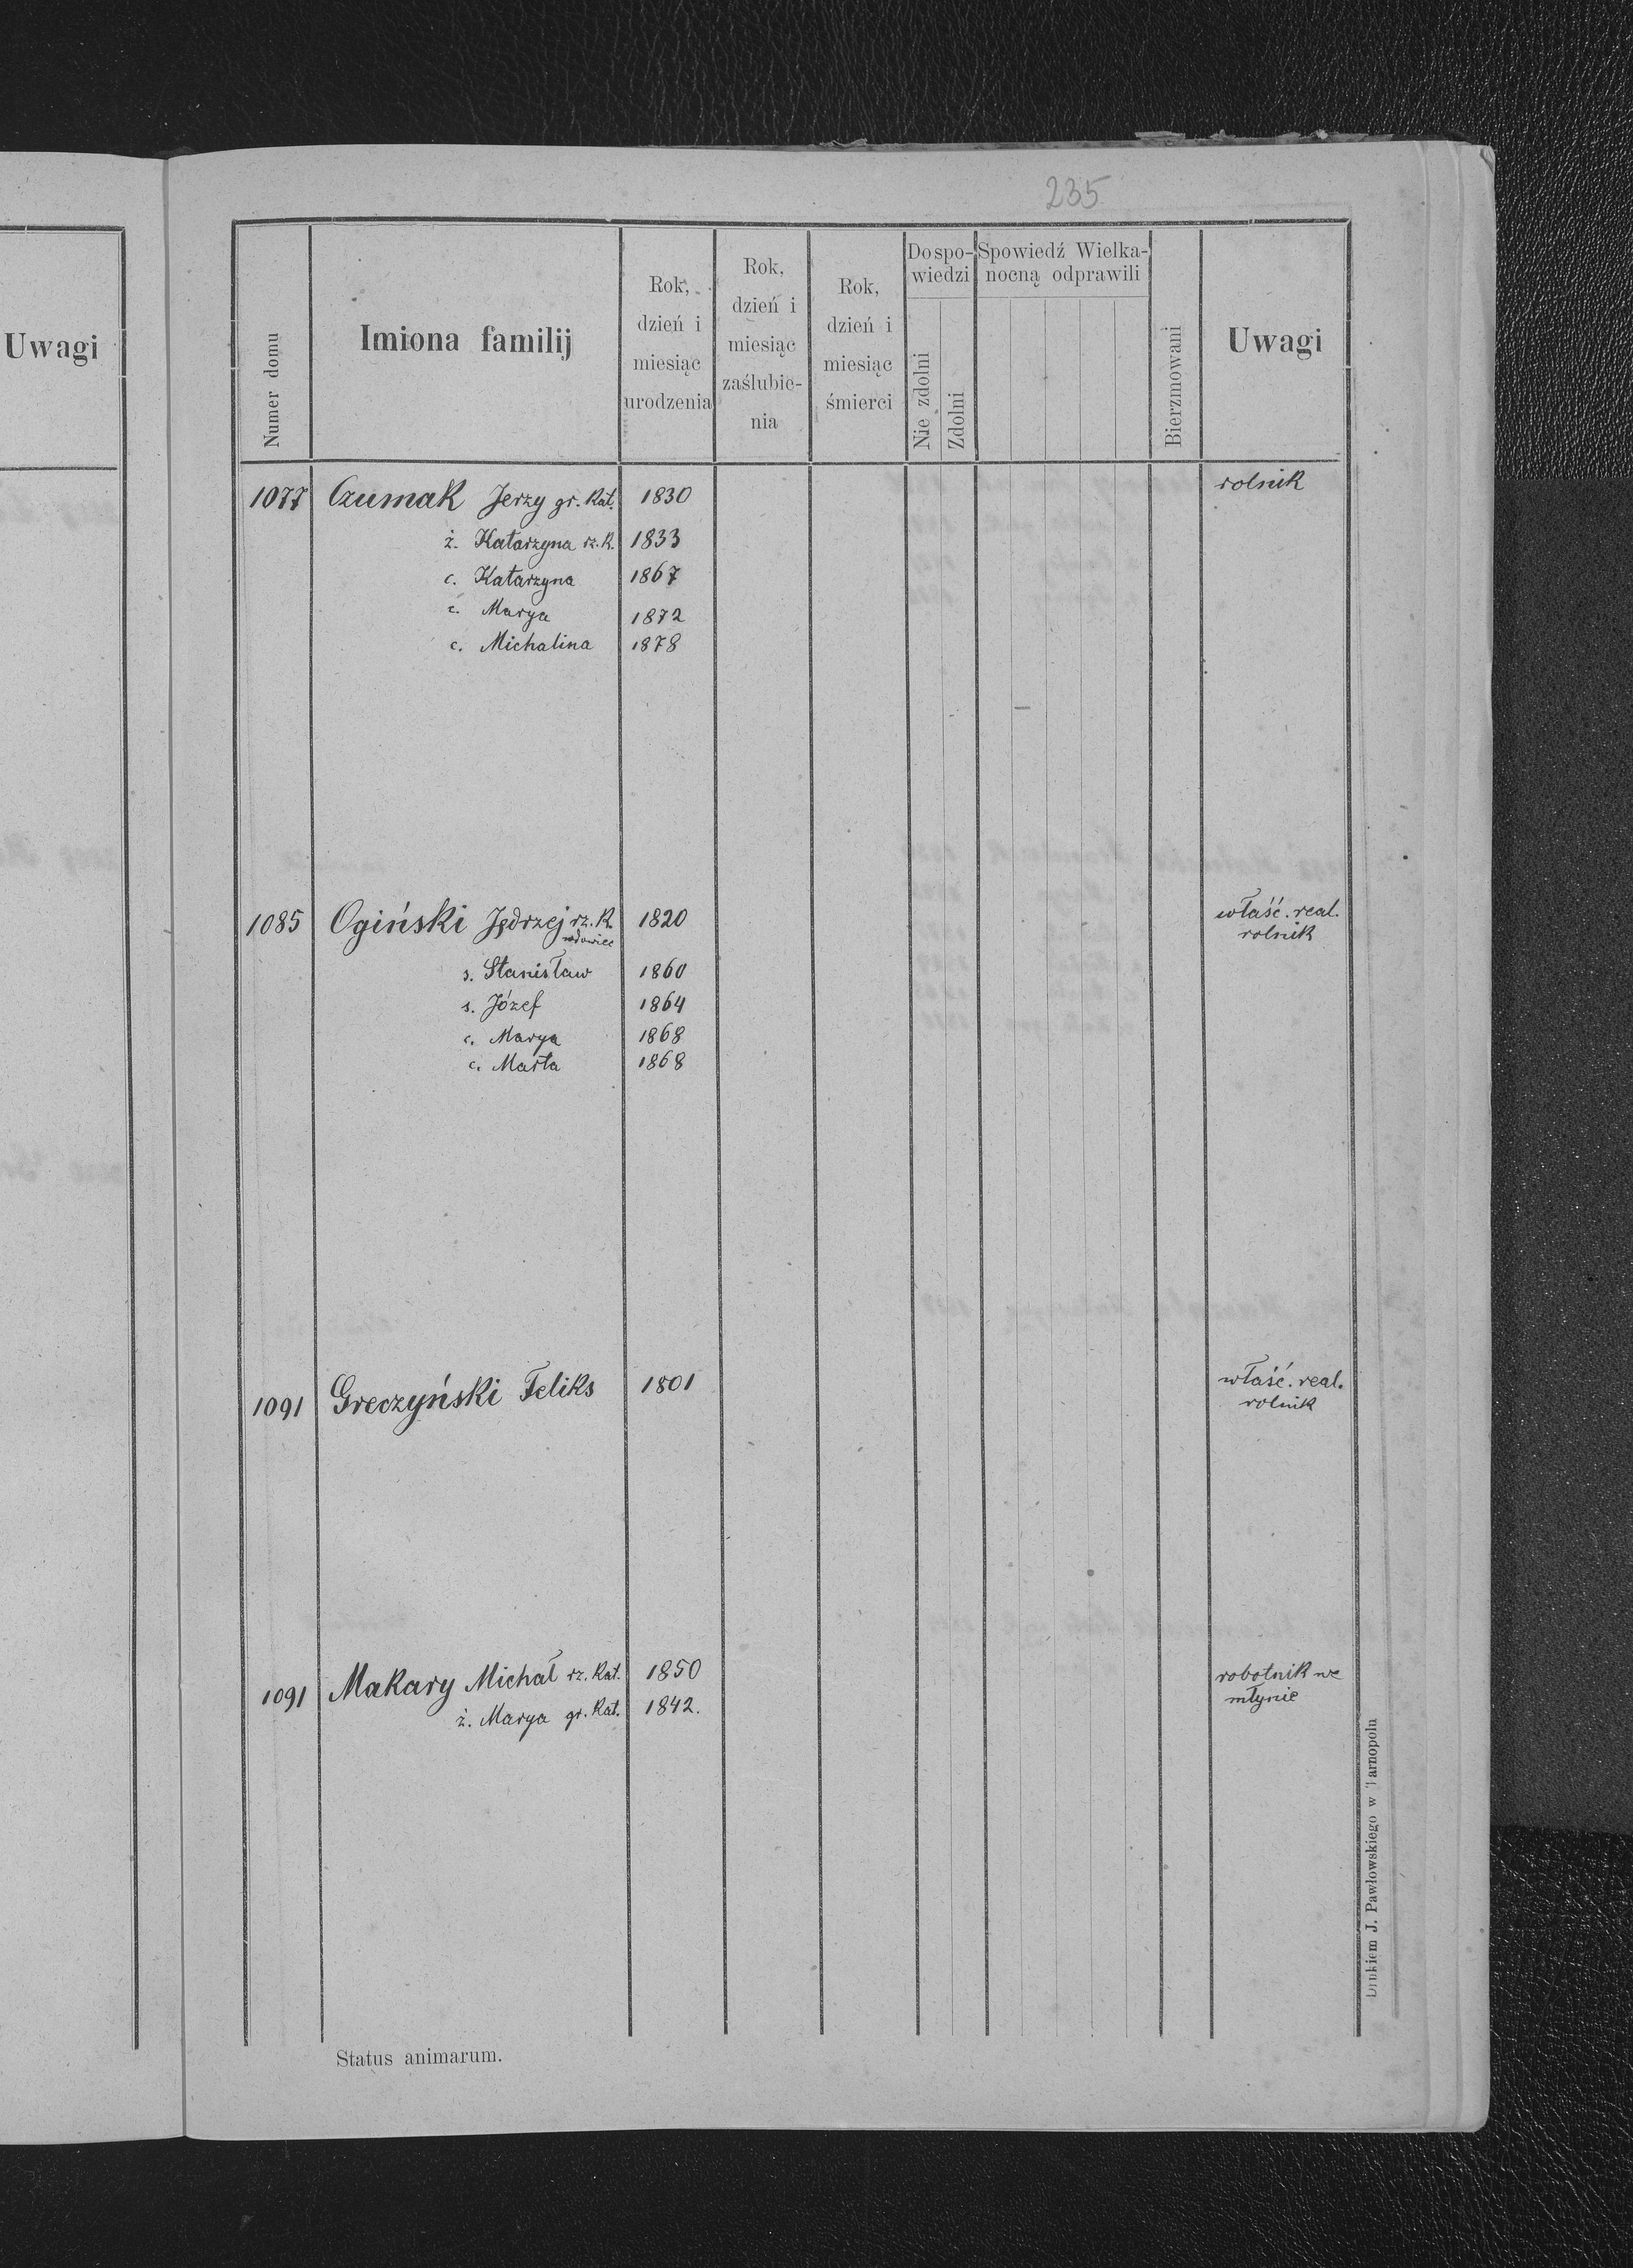 235
Uwagi
Numer domu
Imiona familij
Rok,
dzień i
miesiąc
urodzenia
Rok,
dzień i
miesiąc
zaślubie-
nia
Rok,
dzień i
miesiąc
śmierci
Do spo-
wiedzi
Nie zdolni
Zdolni
Spowiedź Wielka-
nocną odprawili
Bierzmowani
Uwagi
1077 Czumak Jerzy gr. kat. 1830 rolnik
ż. Katarzyna rz. k. 1833
c. Katarzyna 1867
c. Marya 1872
c. Michalina 1878
1085 Ogiński Jędrzej rz. k. 1820 właść. real.
wdowiec rolnik
s. Stanisław 1860
s. Józef 1864
c. Marya 1868
c. Marta 1868
1091 Greczyński Feliks 1801 właść. real.
rolnik
1091 Makary Michał rz. kat. 1850 robotnik we
ż. Marya gr. kat. 1842. młynie
Drukiem J. Pawłowskiego w Tarnopolu
Status animarum.